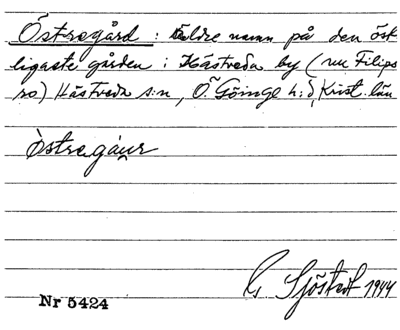 Östregård : äldre namn på den öst
ligaste gården i Hästveda by (nu Filips
ro) Hästveda s:n, Ö. Göinge h:d, Krist. län
òstregáur
G. Sjöstedt 1944
Nr 5424